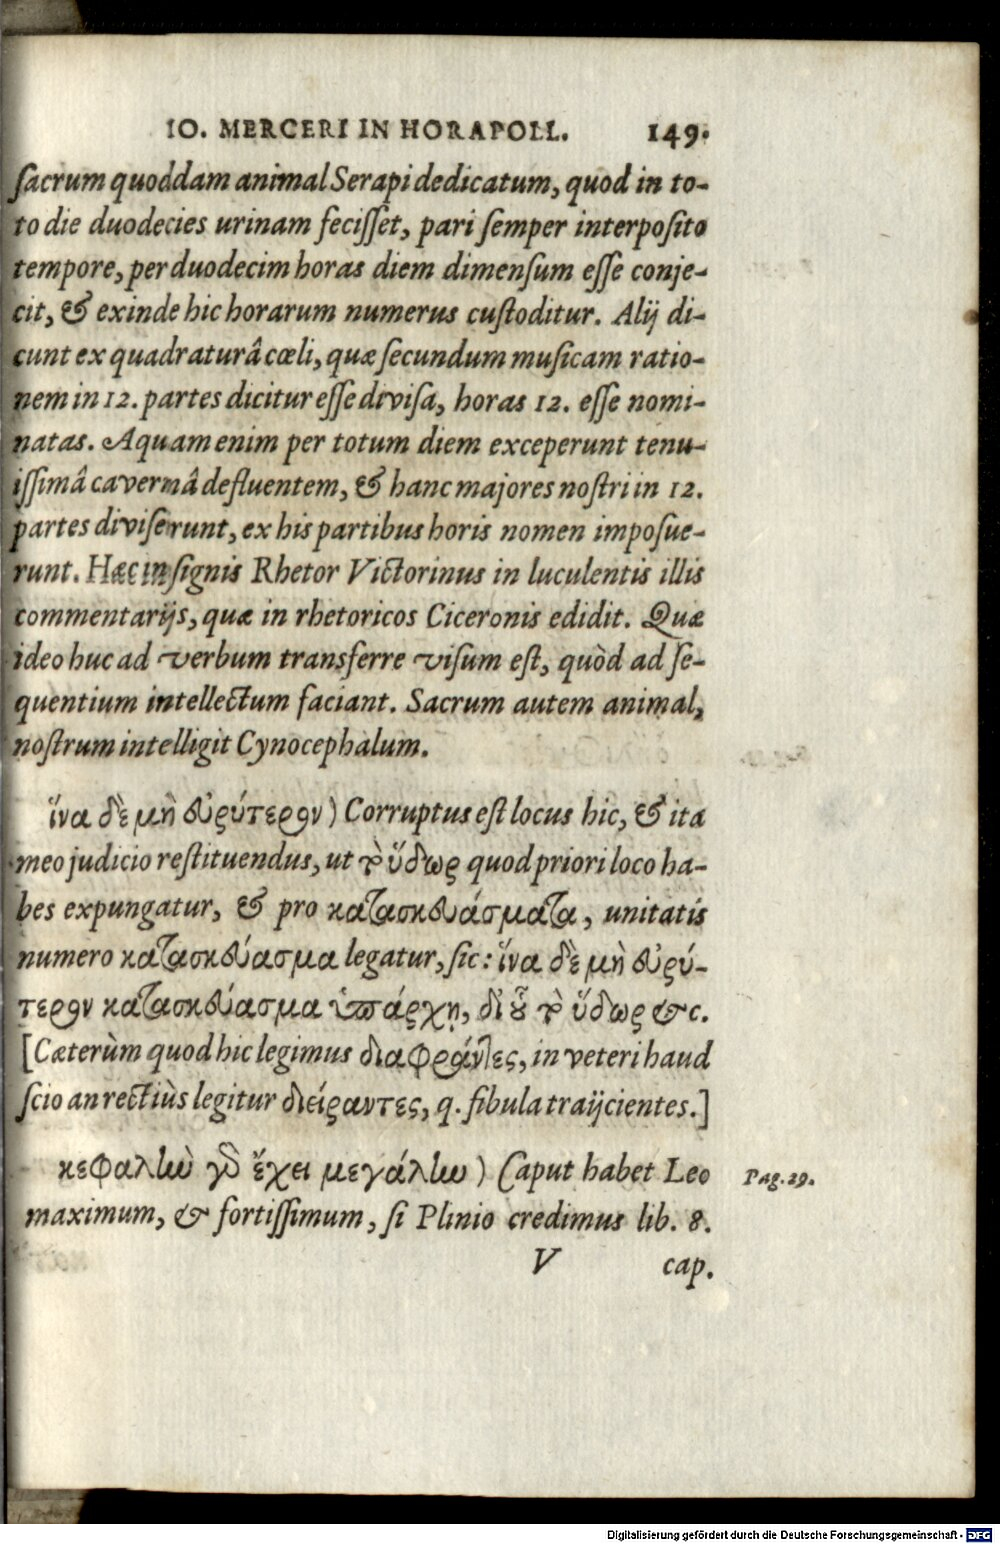 IO. MERCERI IN HORAPOLL. 149.
sacrum quoddam animal Serapi dedicatum, quod in to-
to die duodecies urinam fecisset, pari semper interposito
tempore, per duodecim horas diem dimensum esse conje-
cit, & exinde hic horarum numerus custoditur. Alij di-
cunt ex quadraturâ cœli, quæ secundum musicam ratio-
nem in 12. partes dicitur esse divisa, horas 12. esse nomi-
natas. Aquam enim per totum diem exceperunt tenu-
issimâ cavernâ defluentem, & hanc majores nostri in 12.
partes diviserunt, ex his partibus horis nomen imposue-
runt. Hæc insignis Rhetor Victorinus in luculentis illis
commentarijs, quæ in rhetoricos Ciceronis edidit. Quæ
ideo huc ad verbum transferre visum est, quòd ad se-
quentium intellectum faciant. Sacrum autem animal,
nostrum intelligit Cynocephalum.
ἵνα δὲ μὴ εὐρύτερον) Corruptus est locus hic, & ita
meo judicio restituendus, ut τὸ ὕδωρ quod priori loco ha-
bes expungatur, & pro κατασκευάσματα, unitatis
numero κατασκεύασμα legatur, sic: ἵνα δὲ μὴ εὐρύ-
τερον κατασκεύασμα ὑπάρχῃ, δι' οὗ τὸ ὕδωρ &c.
[Cæterùm quod hic legimus διαφράντες, in veteri haud
scio an rectiùs legitur διείραντες, q. fibula traijcientes.]
κεφαλὴν γὸ ἔχει μεγάλην) Caput habet Leo
Pag. 29.
maximum, & fortissimum, si Plinio credimus lib. 8.
V cap.
Digitalisierung gefördert durch die Deutsche Forschungsgemeinschaft - DFG